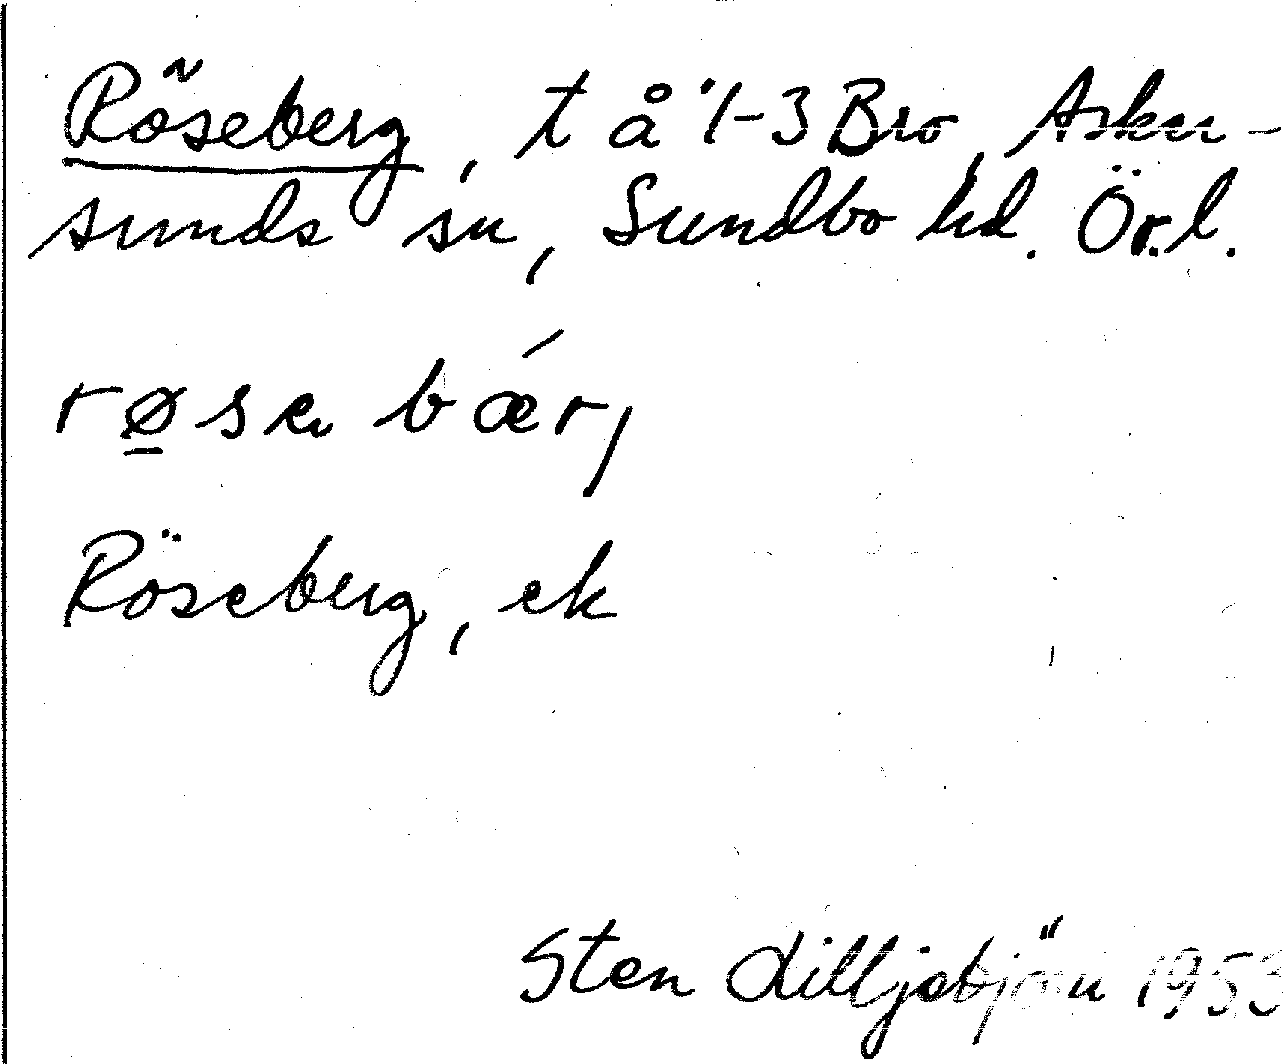 Röseberg, t å 1-3 Bro, Asker-
sunds sn, Sundbo hd. Ör.l.
rø̱sa bǽr,
Röseberg, ek
Sten Lilljebjörn 1953